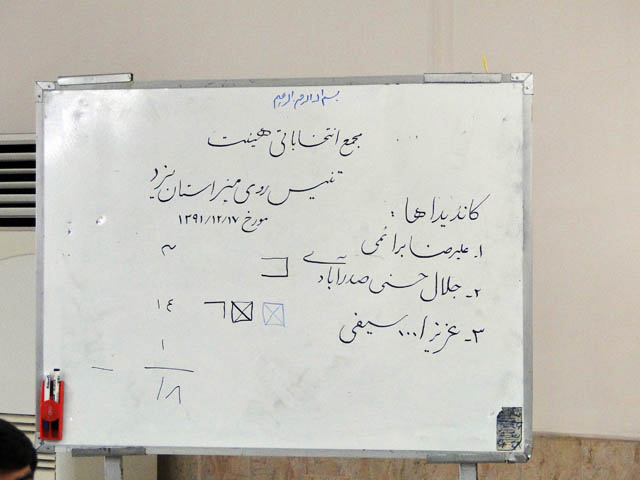 بسم الله الرحمن الرحیم
مجمع انتخاباتی هیئت
تنیس روی میز استان یزد
مورخ ۱۳۹۱/۱۲/۱۷
کاندیداها :
۱- علیرضا براتی
۲- جلال حسنی صدرآبادی
۳- عزیز ا... سیفی
۳
۱۴
۱
۱۸